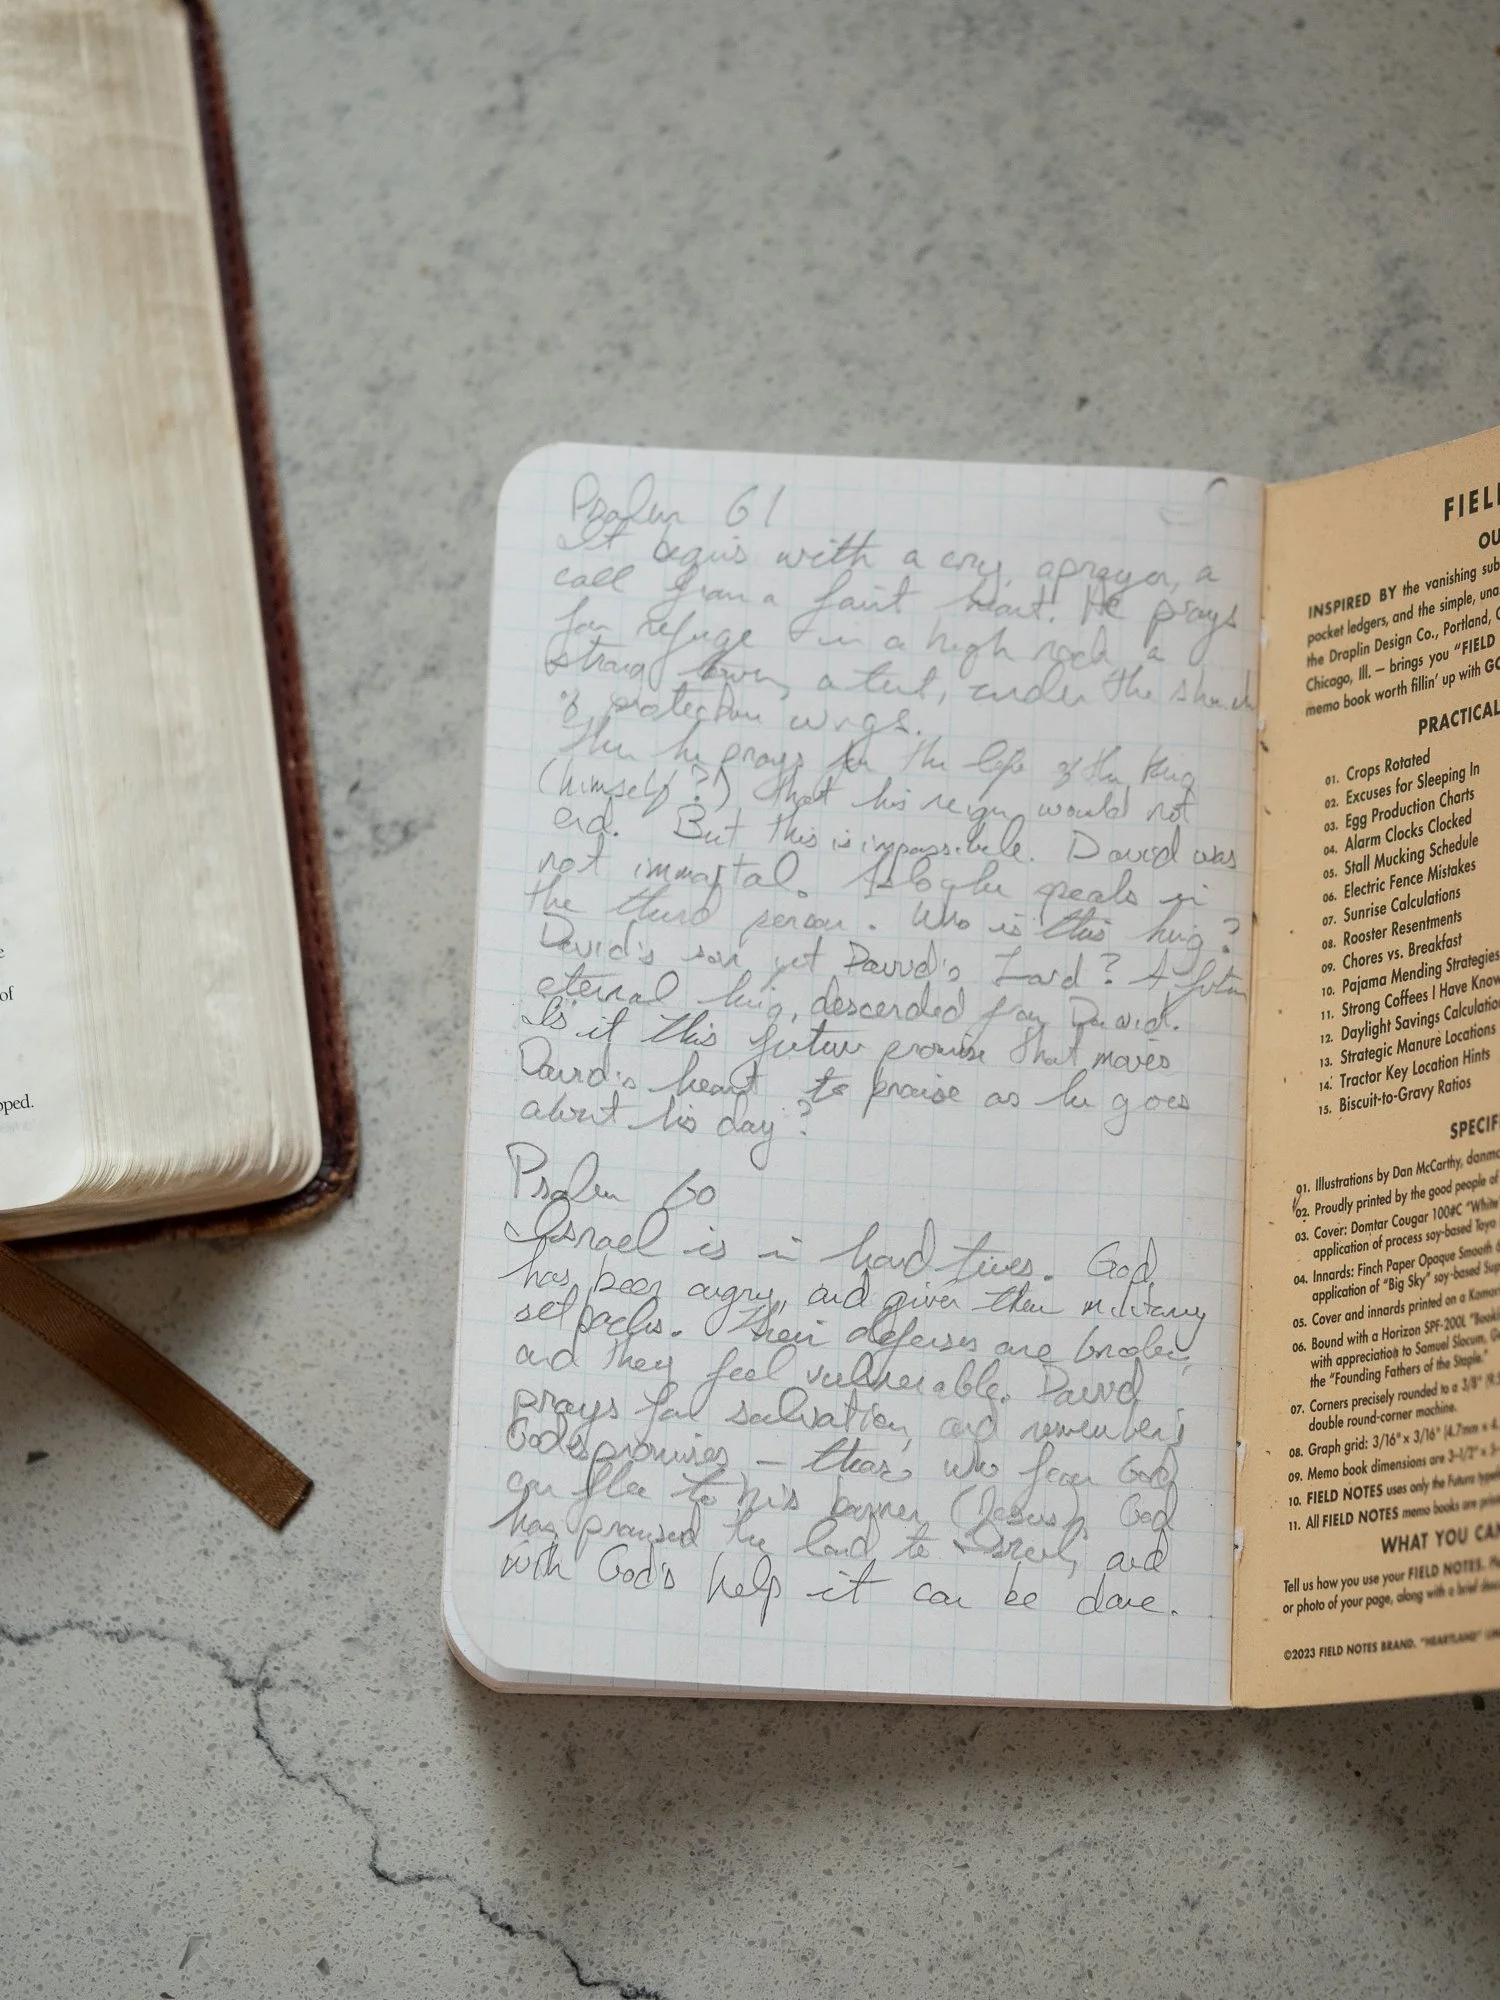 of
pped.
Psalm 61
It begins with a cry, a prayer, a
call from a faint heart. He prays
for refuge in a high rock, a
strong tower, a tent, under the
of protection wings.
Then he prays for the life of the King
(himself?) that his reign would not
end. But this is impossible. David was
not immortal. Also he speaks in
the third person. Who is this king?
David's son yet David's Lord? A
eternal king, descended from David.
Is it this future promise that moves
David's heart to praise as he goes
about his day?
Psalm 60
Israel is in hard times. God
has been angry, and given them military
setbacks. Their defenses are broken,
and they feel vulnerable. David
prays for salvation, and remembers
God's promises — those who fear God
can flee to his banner (Jesus). God
has promised the land to Israel, and
with God's help it can be done.
FIEL
OU
INSPIRED BY the vanishing sub
pocket ledgers, and the simple, una
the Draplin Design Co., Portland, O
Chicago, Ill. — brings you "FIELD
memo book worth fillin' up with GO
PRACTICAL
01. Crops Rotated
02. Excuses for Sleeping In
03. Egg Production Charts
04. Alarm Clocks Clocked
05. Stall Mucking Schedule
06. Electric Fence Mistakes
07. Sunrise Calculations
08. Rooster Resentments
09. Chores vs. Breakfast
10. Pajama Mending Strategies
11. Strong Coffees I Have Know
12. Daylight Savings Calculatio
13. Strategic Manure Locations
14. Tractor Key Location Hints
15. Biscuit-to-Gravy Ratios
SPECIF
01. Illustrations by Dan McCarthy, danmc
02. Proudly printed by the good people of
03. Cover: Domtar Cougar 100#C "White
application of process soy-based Toyo
04. Innards: Finch Paper Opaque Smooth
application of "Big Sky" soy-based Sup
05. Cover and innards printed on a Komor
06. Bound with a Horizon SPF-200L "Bookl
with appreciation to Samuel Slocum, Ge
the "Founding Fathers of the Staple."
07. Corners precisely rounded to a 3/8" (9.5
double round-corner machine.
08. Graph grid: 3/16" x 3/16" (4.7mm x 4.
09. Memo book dimensions are 3-1/2" x 5-
10. FIELD NOTES uses only the Futura typef
11. All FIELD NOTES memo books are prin
WHAT YOU CAN
Tell us how you use your FIELD NOTES. Pl
or photo of your page, along with a brief desc
©2023 FIELD NOTES BRAND. "HEARTLAND" LIM